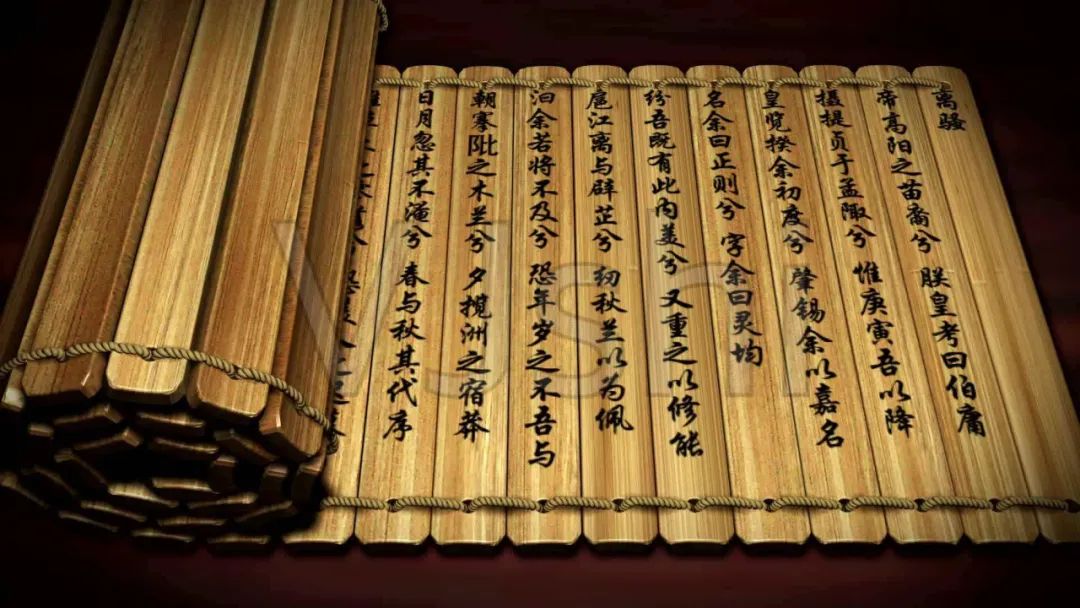 离骚
帝高阳之苗裔兮 朕皇考曰伯庸
摄提贞于孟陬兮 惟庚寅吾以降
皇览揆余初度兮 肇锡余以嘉名
名余曰正则兮 字余曰灵均
纷吾既有此内美兮 又重之以修能
扈江离与辟芷兮 纫秋兰以为佩
汩余若将不及兮 恐年岁之不吾与
朝搴阰之木兰兮 夕揽洲之宿莽
日月忽其不淹兮 春与秋其代序
木之 兮 人之